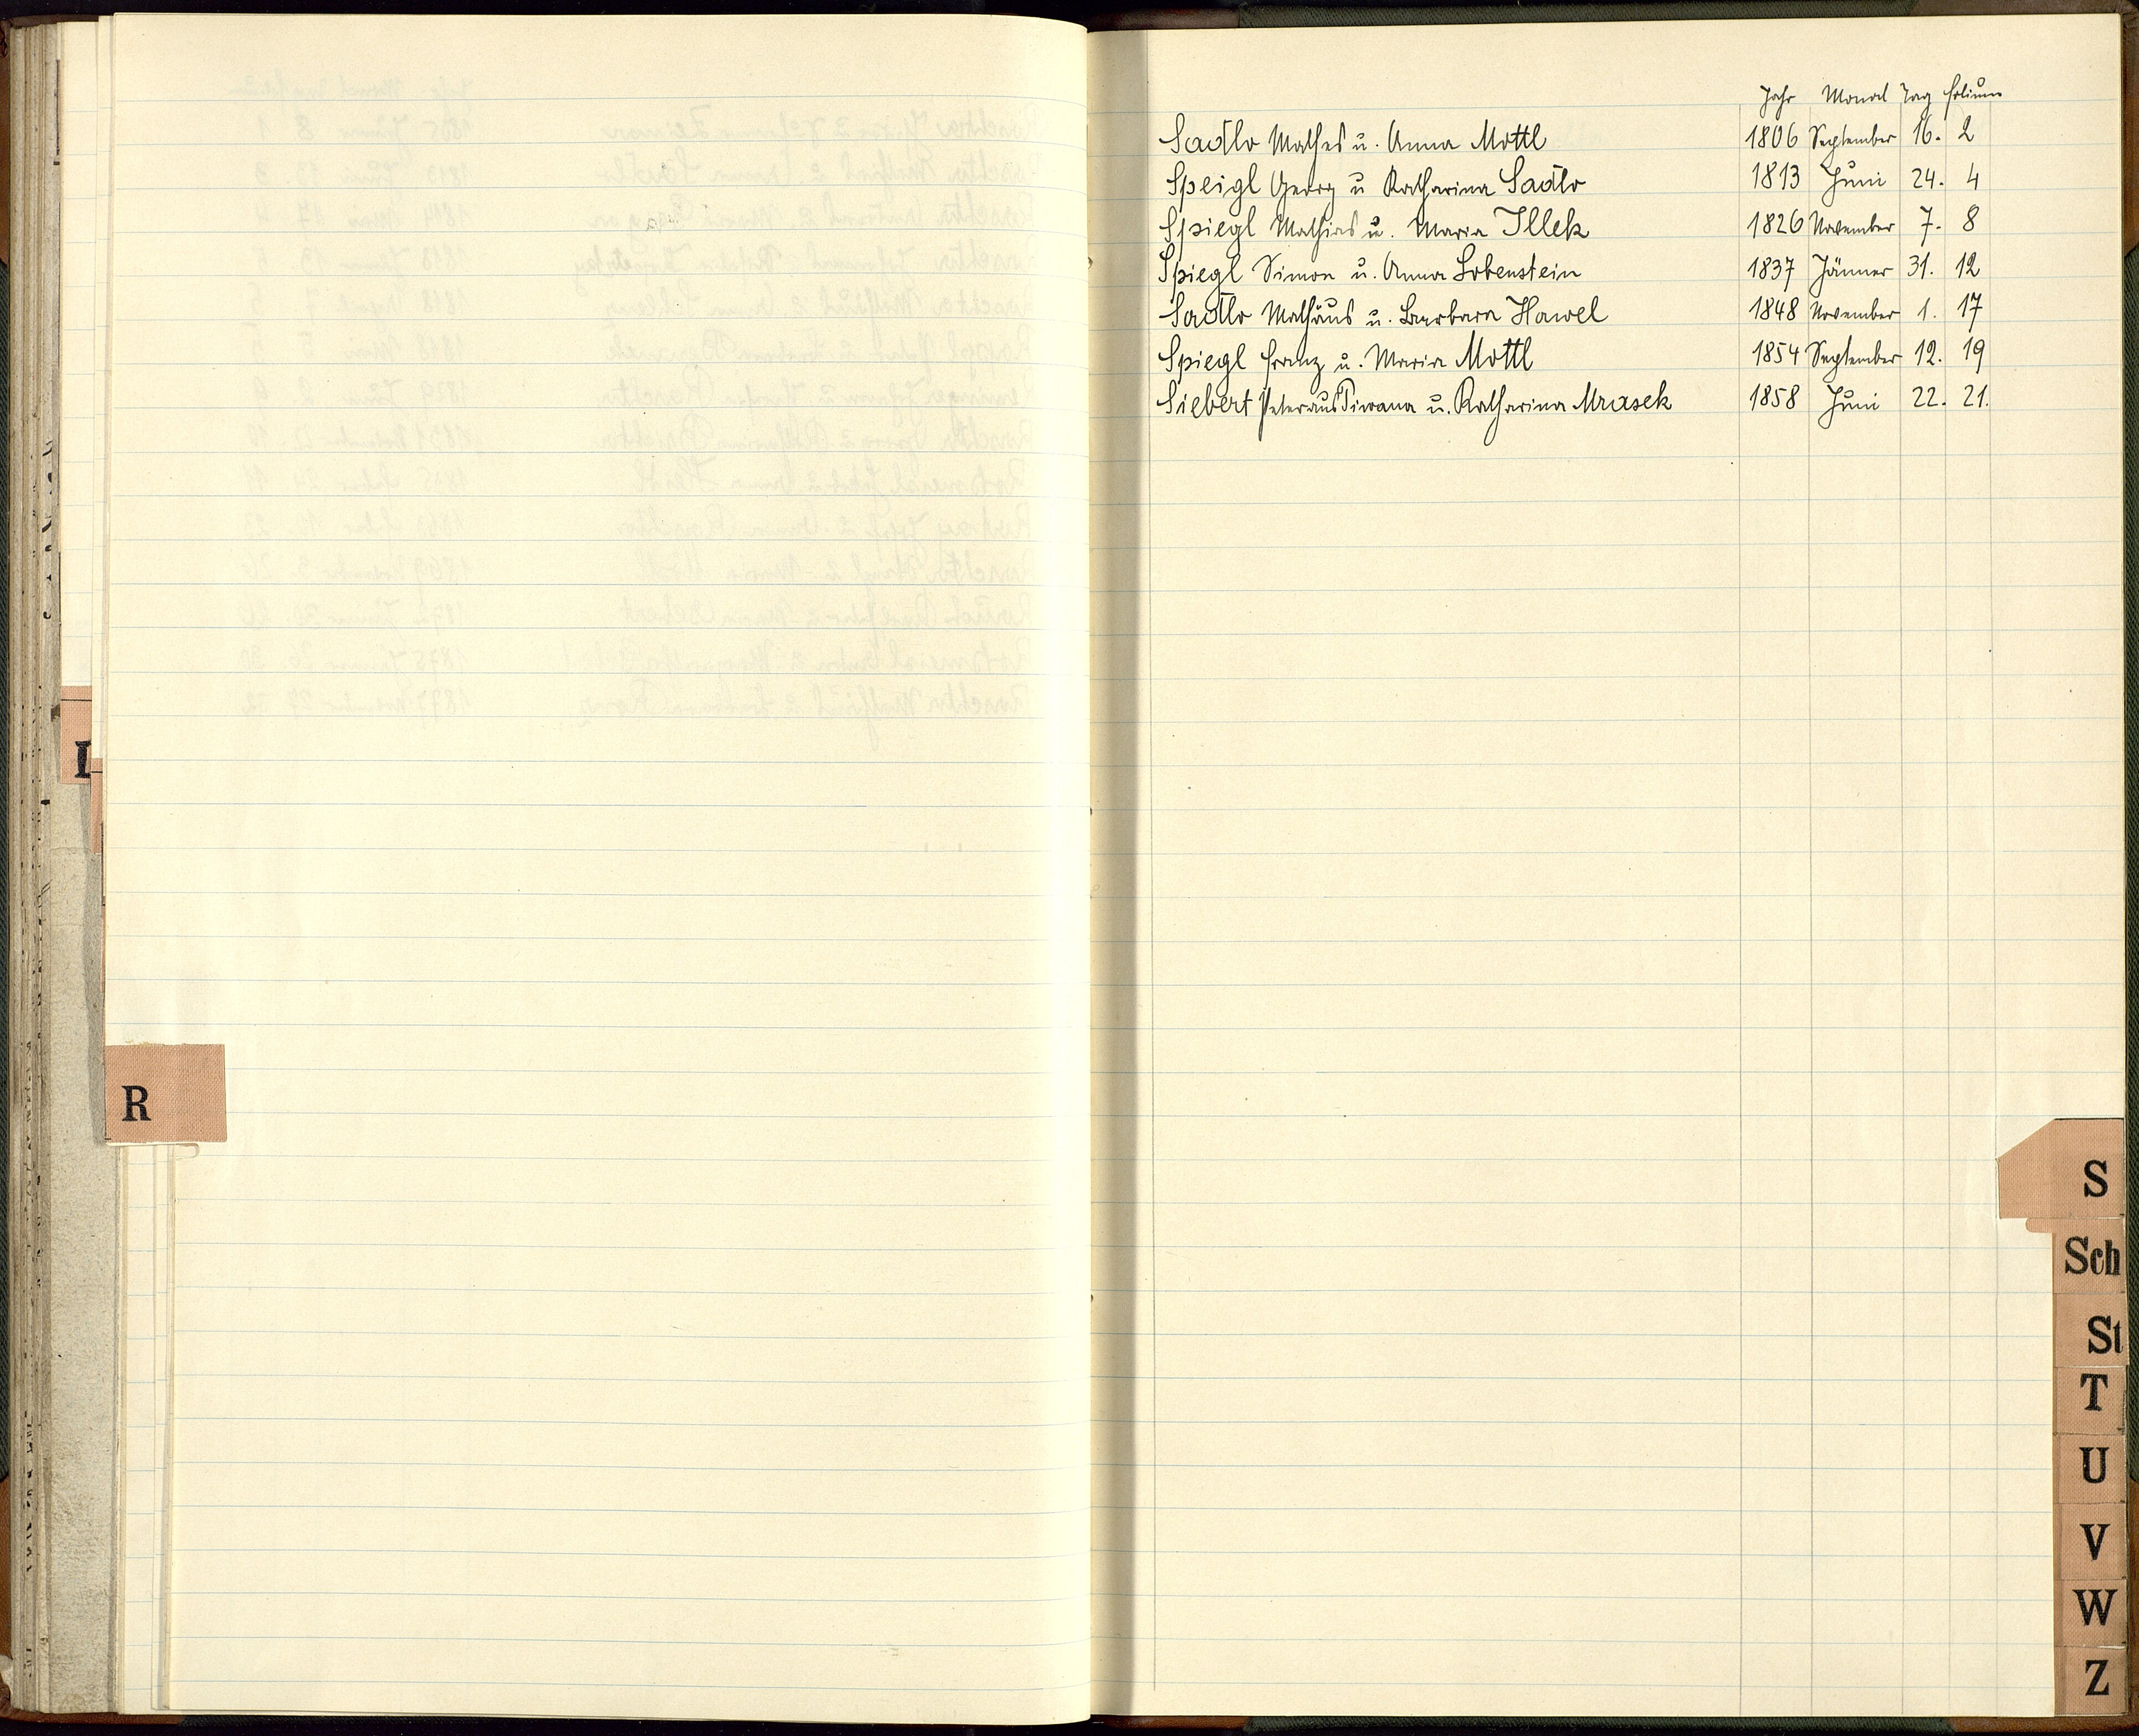 Jahr Monat Tag Folium
Sadlo Mathes u. Anna Mottl 1806 September 16. 2
Speigl Georg u Katharina Sadlo 1813 Juni 24. 4
Spiegl Mathias u. Maria Illek 1826 November 7. 8
Spiegl Simon u. Anna Lobenstein 1837 Jänner 31. 12
Sadlo Mathäus u. Barbara Hawel 1848 November 1. 17
Spiegl Franz u. Maria Mottl 1854 September 12. 19
Siebert Peter aus Tiwana u. Katharina Mrasek 1858 Juni 22. 21.
L
R
S
Sch
St
T
U
V
W
Z